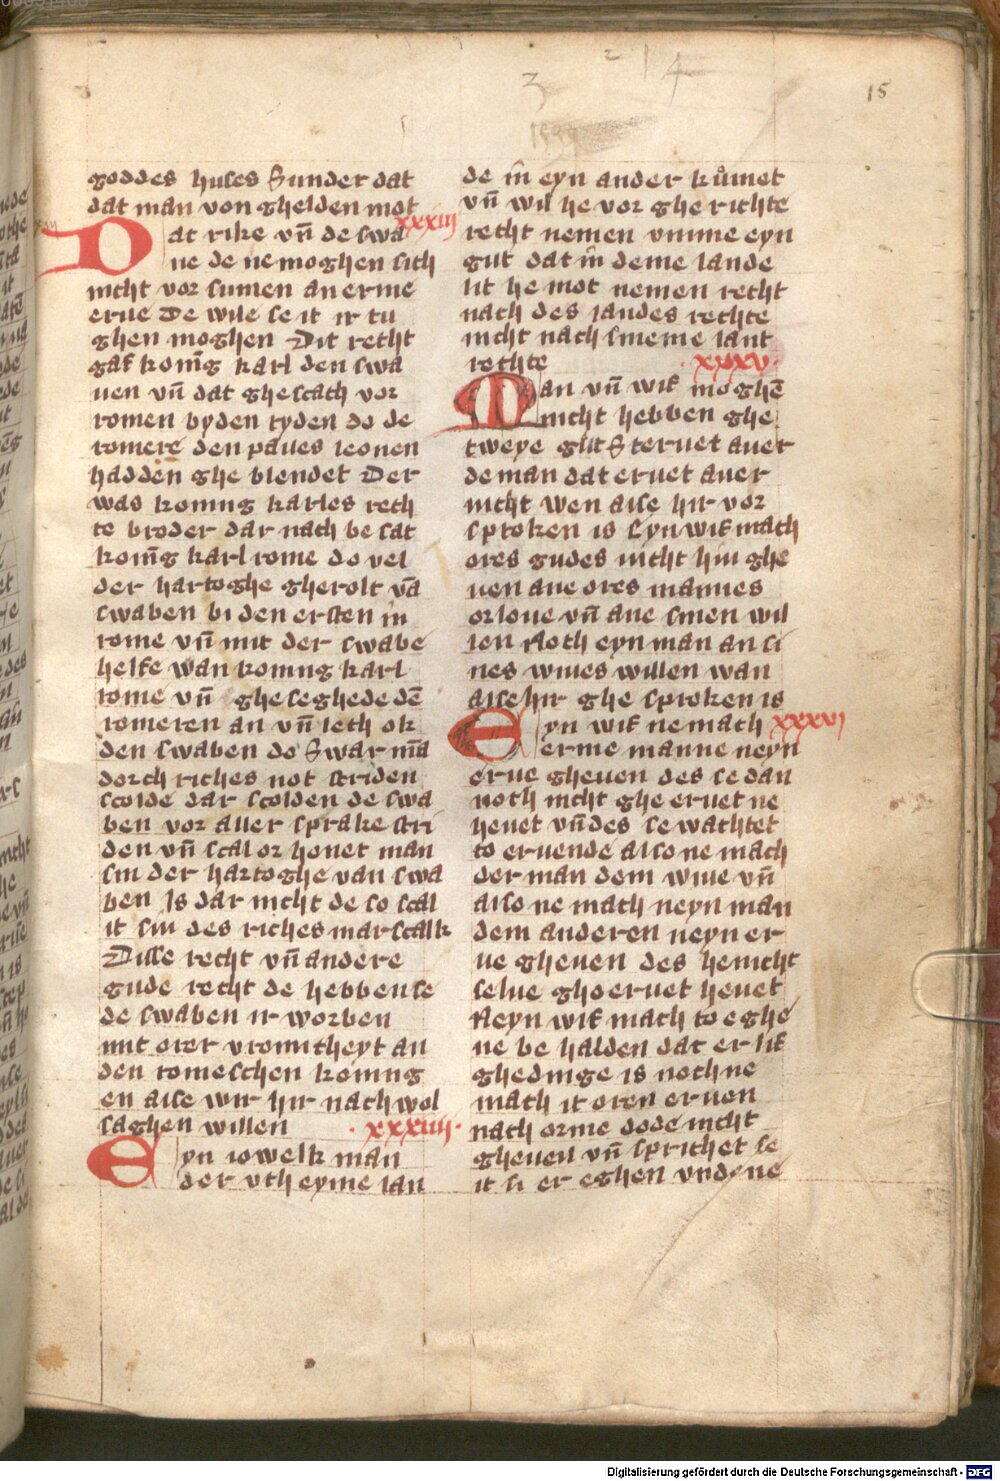 15
goddes huses Sunder dat
dat man von ghelden mot
xxxiii
Dat rike vn̄ de swa
ne de ne moghen sich
nicht vor sumen an erme
erue De wile se it ir tu
ghen moghen Dit recht
gaf konīg karl den swa
uen vn̄ dat ghescach vor
romen byden tyden do de
romere den paues leonen
hadden ghe blendet Der
was konnig karles rech
te broder dar nach be sat
konīg karl rome do vel
der hartoghe gherolt vā
swaben bi den ersten in
rome vn̄ mit der swabe
helfe wan konnig karl
rome vn̄ gheseghede dē
romeren an vn̄ lech ok
den swaben do Swar mā
dorch riches not striden
scolde dar scolden de swa
ben vor auer sprake stri
den vn̄ scal or houet man
sin der hartoghe van swa
ben Is dar nicht de so scal
it sin des riches marscalk
Disse recht vn̄ andere
gude recht de hebben se
de swaben ir worben
mit orer vromicheyt an
den romeschen konnig
en alse wir hir nach wol
saghen willen
xxxiiii
Eyn iowelk man
der vth eyme lan
de in eyn ander kůmet
vn̄ wil he vor gherichte
recht nemen vmme eyn
gut dat in deme lande
lit he mot nemen recht
nach des landes rechte
nicht nach sineme lant
rechte
xxxv
Man vn̄ wif moghē
nicht hebben ghe
tweye gut Steruet auer
de man dat eruet auer
nicht wen alse hir vor
sproken is Syn wif mach
ores gudes nicht hin ghe
uen ane ores mannes
orloue vn̄ ane sinen wil
len Noch eyn man an si
nes wiues willen wan
alse hir ghe sproken is
xxxvi
Eyn wif ne mach
erme manne neyn
erue gheuen des se dan
noch nicht ghe eruet ne
heuet vn̄ des se wachtet
to eruende also ne mach
der man dem wiue vn̄
also ne mach neyn man
dem anderen neyn er
ue gheuen des he nicht
selue gho eruet heuet
Neyn wif mach to eghe
ne be halden dat er lif
ghedinge is noch ne
mach it oren eruen
nach orme dode nicht
gheuen vn̄ sprichet se
it si er eghen vnde ne
Digitalisierung gefördert durch die Deutsche Forschungsgemeinschaft - DFG